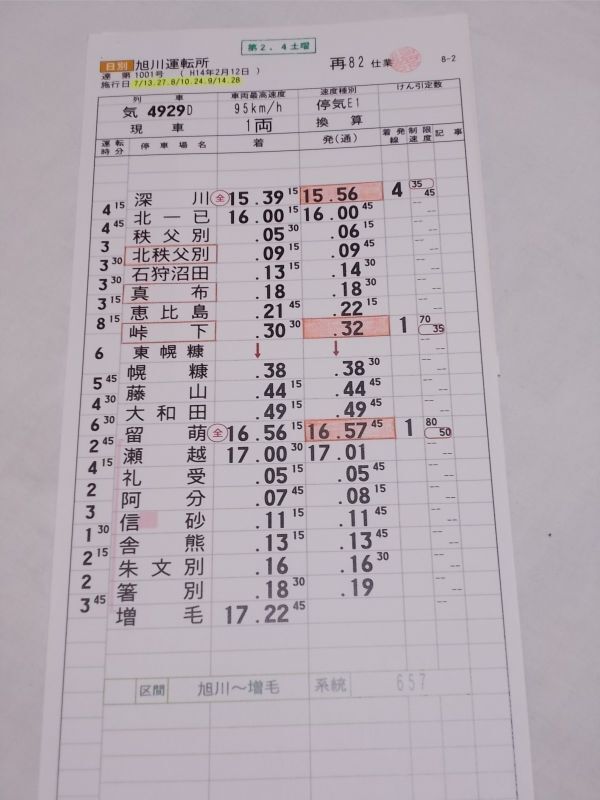 第2．4土曜
日別 旭川運転所 再82 仕業 8-2
達 第1001号 （ H14年2月12日 ）
施行日 7/13.27.8/10.24.9/14.28
列車 車両最高速度 速度種別 けん引定数
気 4929D 95km/h 停気E1
現車 1両 換算
運転時分 停車場名 着 発(通) 着発線 制限速度 記事
深川 全 15.39 15 15.56 4 35 45
4 15
北一已 16.00 15 16.00 45
4 45
秩父別 .05 30 .06 15
3
北秩父別 .09 15 .09 45
3 30
石狩沼田 .13 15 .14 30
3 30
真布 .18 .18 30
3 15
恵比島 .21 45 .22 15
8 15
峠下 .30 30 .32 1 70 35
東幌糠 ↓ ↓
6
幌糠 .38 .38 30
5 45
藤山 .44 15 .44 45
4 30
大和田 .49 15 .49 45
6 30
留萌 全 16.56 15 16.57 45 1 80 50
2 45
瀬越 17.00 30 17.01
4 15
礼受 .05 15 .05 45
2
阿分 .07 45 .08 15
3
信砂 .11 15 .11 45
1 30
舎熊 .13 15 .13 45
2 15
朱文別 .16 .16 30
2
箸別 .18 30 .19
3 45
増毛 17.22 45
区間 旭川～増毛 系統 657